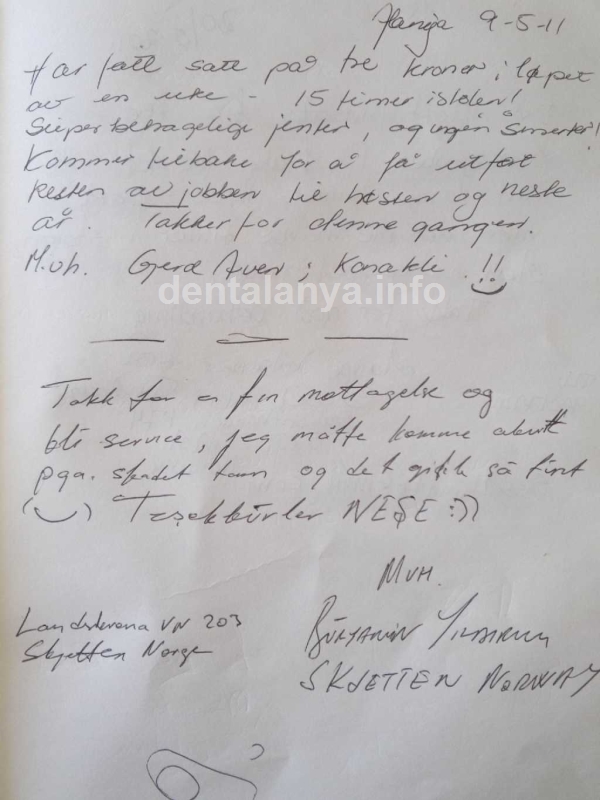 Alanya 9-5-11
Har fått satt på tre kroner i løpet
av en uke - 15 timer i stolen!
Superbehagelige jenter, og ingen smerter!
Kommer tilbake for å få utført
resten av jobben til høsten og neste
år. Takker for denne gangen.
M.vh. Gerd Aven; Konakli !!
dentalanya.info
Takk for en fin mottagelse og
service, jeg måtte komme akutt
pga. skadet tann og det gikk så fint
Teşekkürler NEŞE :))
Mvh.
Landsdverona VN 203
BÜNYAMIN Yıldırım
Skjetten Norge
SKJETTEN NORWAY